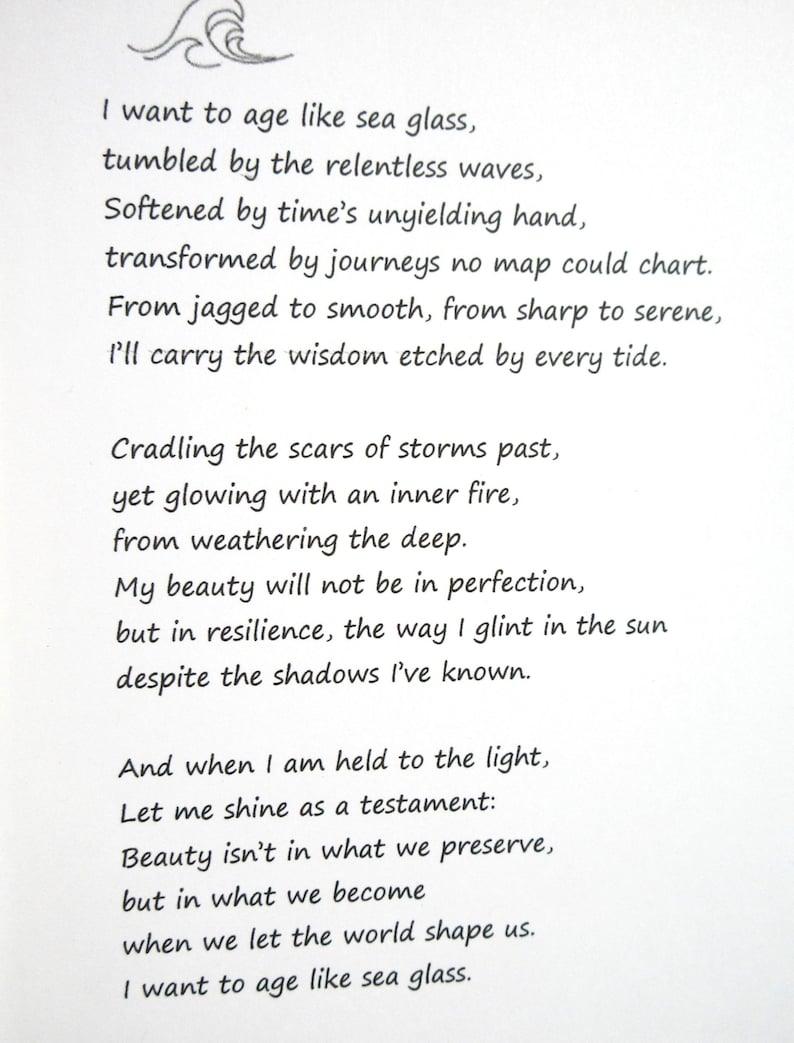 I want to age like sea glass,
tumbled by the relentless waves,
Softened by time's unyielding hand,
transformed by journeys no map could chart.
From jagged to smooth, from sharp to serene,
I'll carry the wisdom etched by every tide.
Cradling the scars of storms past,
yet glowing with an inner fire,
from weathering the deep.
My beauty will not be in perfection,
but in resilience, the way I glint in the sun
despite the shadows I've known.
And when I am held to the light,
Let me shine as a testament:
Beauty isn't in what we preserve,
but in what we become
when we let the world shape us.
I want to age like sea glass.